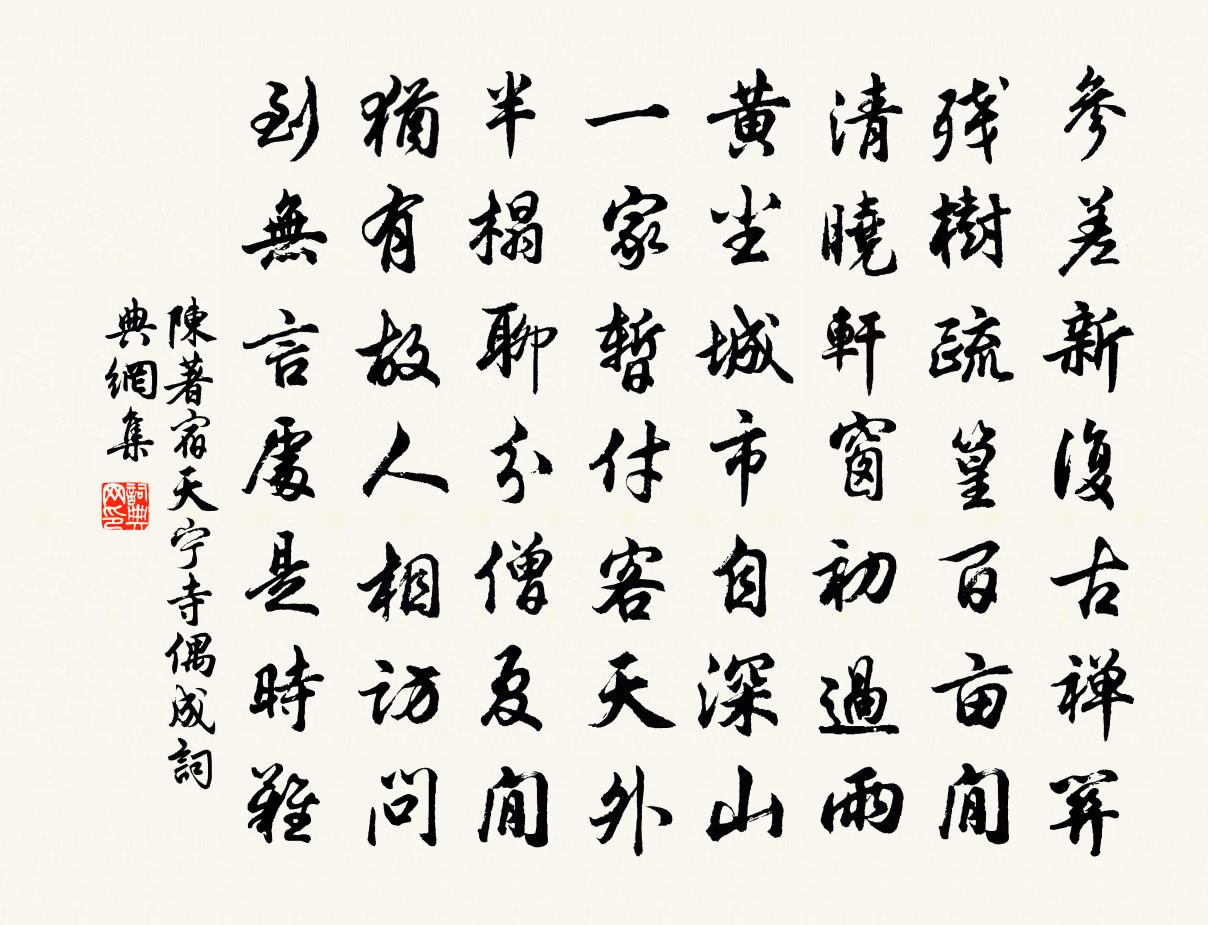 參差新復古禅關
残樹疏篁百亩閒
清曉軒窗初過雨
黄尘城市自深山
一家暫付客天外
半榻聊分僧夏閒
猶有故人相訪問
到無言處是時難
陳著宿天宁寺偶成詞
典網集
詞典
网印